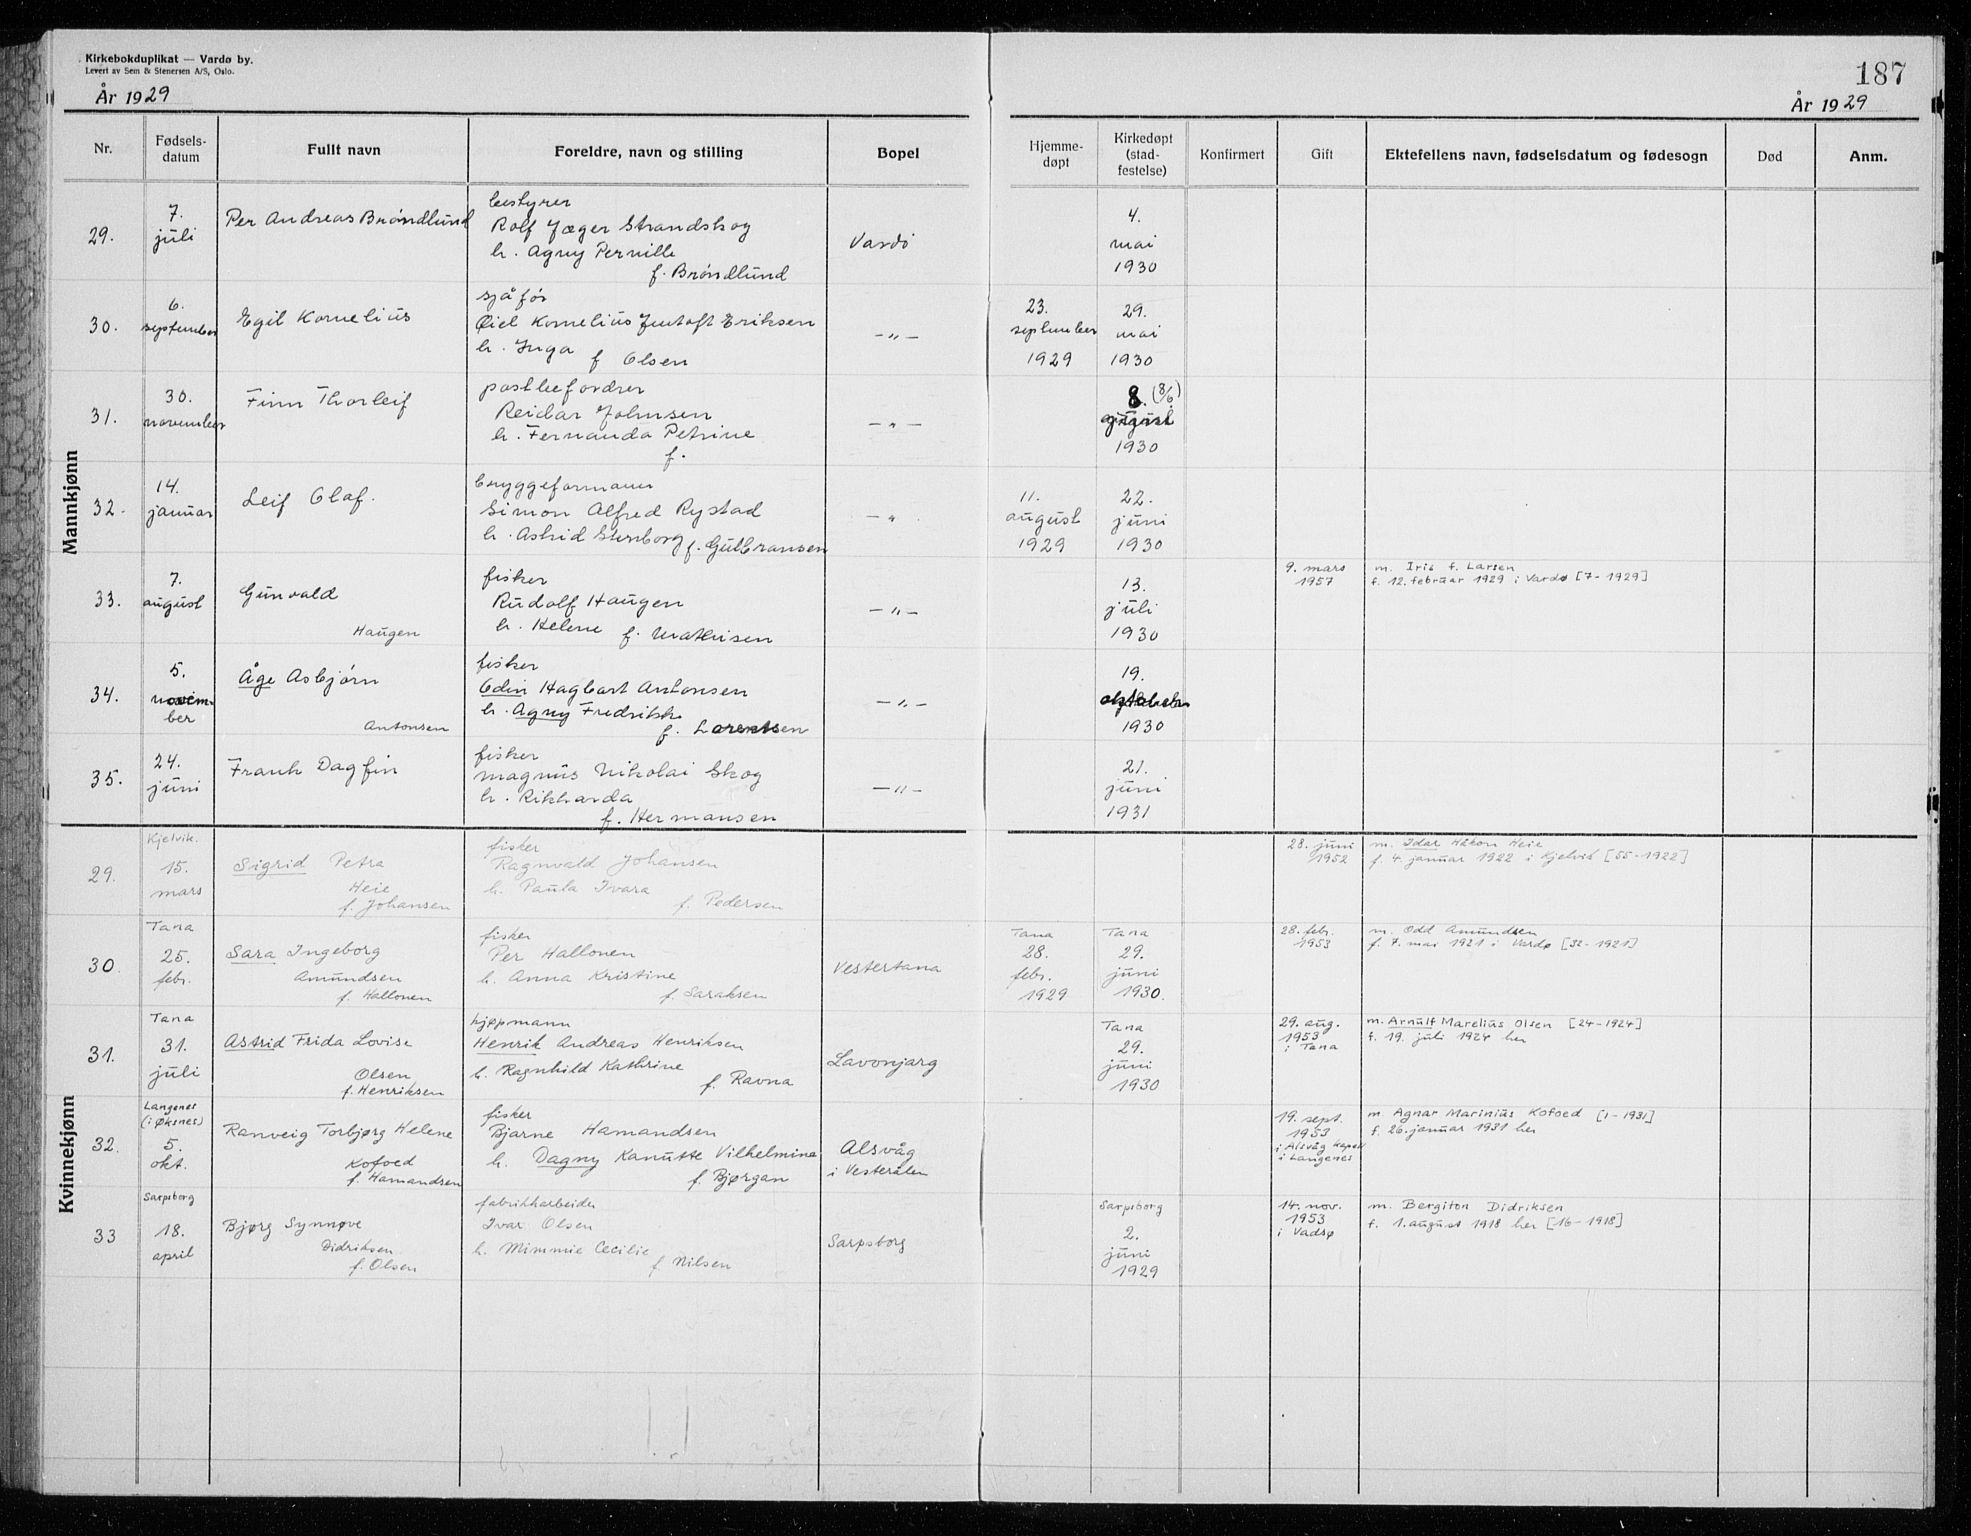 Kirkebokduplikat — Vardø by.
Levert av Sem & Stenersen A/S, Oslo.
År 1929
187
År 1929
Nr.
Fødsels-
datum
Fullt navn
Foreldre, navn og stilling
Bopel
Hjemme-
døpt
Kirkedøpt
(stad-
festelse)
Konfirmert
Gift
Ektefellens navn, fødselsdatum og fødesogn
Død
Anm.
Mannkjønn
29.
7.
juli
Per Andreas Brøndlund
bestyrer
Rolf Jæger Strandskog
h. Agny Pernille
f. Brøndlund
Vardø
4.
mai
1930
30.
6.
september
Egil Kornelius
sjåfør
Kornelius Jentoft Eriksen
h. Inga f Olsen
—„—
23.
september
1929
29.
mai
1930
31.
30.
november
Finn Thorleif
postbefordrer
Reidar Johnsen
h. Fernanda Petrine
f.
—„—
8. (8/6)
1930
32.
14.
januar
Leif Olaf.
bryggeformann
Simon Alfred Rystad
h. Astrid Stenborg f. Gulbransen
—„
11.
august
1929
22.
juni
1930
33.
7.
august
Gunvald
Haugen
fisker
Rudolf Haugen
h. Helene f. Mathisen
—„—
13.
juli
1930
9. mars
1957
m. Iris f. Larsen
f. 12. februar 1929 i Vardø [7-1929]
34.
5.
novem-
ber
Åge Asbjørn
Antonsen
fisker
Edin Hagbart Antonsen
h. Agny Fredrikke
f. Lorentsen
—„—
19.
1930
35.
24.
juni
Frank Dagfin
fisker
Magnus Nikolai Skog
h. Rikharda
f. Hermansen
—„—
21.
juni
1931
Kvinnekjønn
29.
Kjelvik.
15.
mars
Sigrid Petra
Heie
f. Johansen
fisker
Ragnvald Johansen
h. Paula Ivara
f. Pedersen
28. juni
1952
m. Idar Håkon Heie
f. 4. januar 1922 i Kjelvik [55-1922]
30.
Tana
25.
febr.
Sara Ingeborg
Amundsen
f. Hallonen
fisker
Per Hallonen
h. Anna Kristine
f. Saraksen
Vestertana
Tana
28.
febr.
1929
Tana
29.
juni
1930.
28. febr.
1953
m. Odd Amundsen
f. 7. mai 1921 i Vardø [32-1921]
31.
Tana
31.
juli
Astrid Frida Lovise
Olsen
f. Henriksen
kjøpmann
Henrik Andreas Henriksen
h. Ragnhild Kathrine
f. Ravna
Lavonjarg
Tana
29.
juni
1930
29. aug.
1953
i Tana
m. Arnulf Marelius Olsen [24-1924]
f. 19. juli 1924 her
32.
Langenes
(i Øksnes)
5.
okt.
Ranveig Torbjørg Helene
Kofoed
f. Hamandsen
fisker
Bjarne Hamandsen
h. Dagny Kanutte Vilhelmina
f. Bjørgan
Alsvåg
i Vesterålen
19. sept.
1953
i Alsvåg kapell
i Langenes
m. Agnar Marinius Kofoed [1-1931]
f. 26. januar 1931 her
33
Sarpsborg
18.
april
Bjørg Synnøve
Didriksen
f. Olsen
fabrikkarbeider
Ivar Olsen
h. Mimmie Cecilie
f. Nilsen
Sarpsborg
Sarpsborg
2.
juni
1929
14. nov.
1953
i Vadsø
m. Bergiton Didriksen
f. 1. august 1918 her [16-1918]